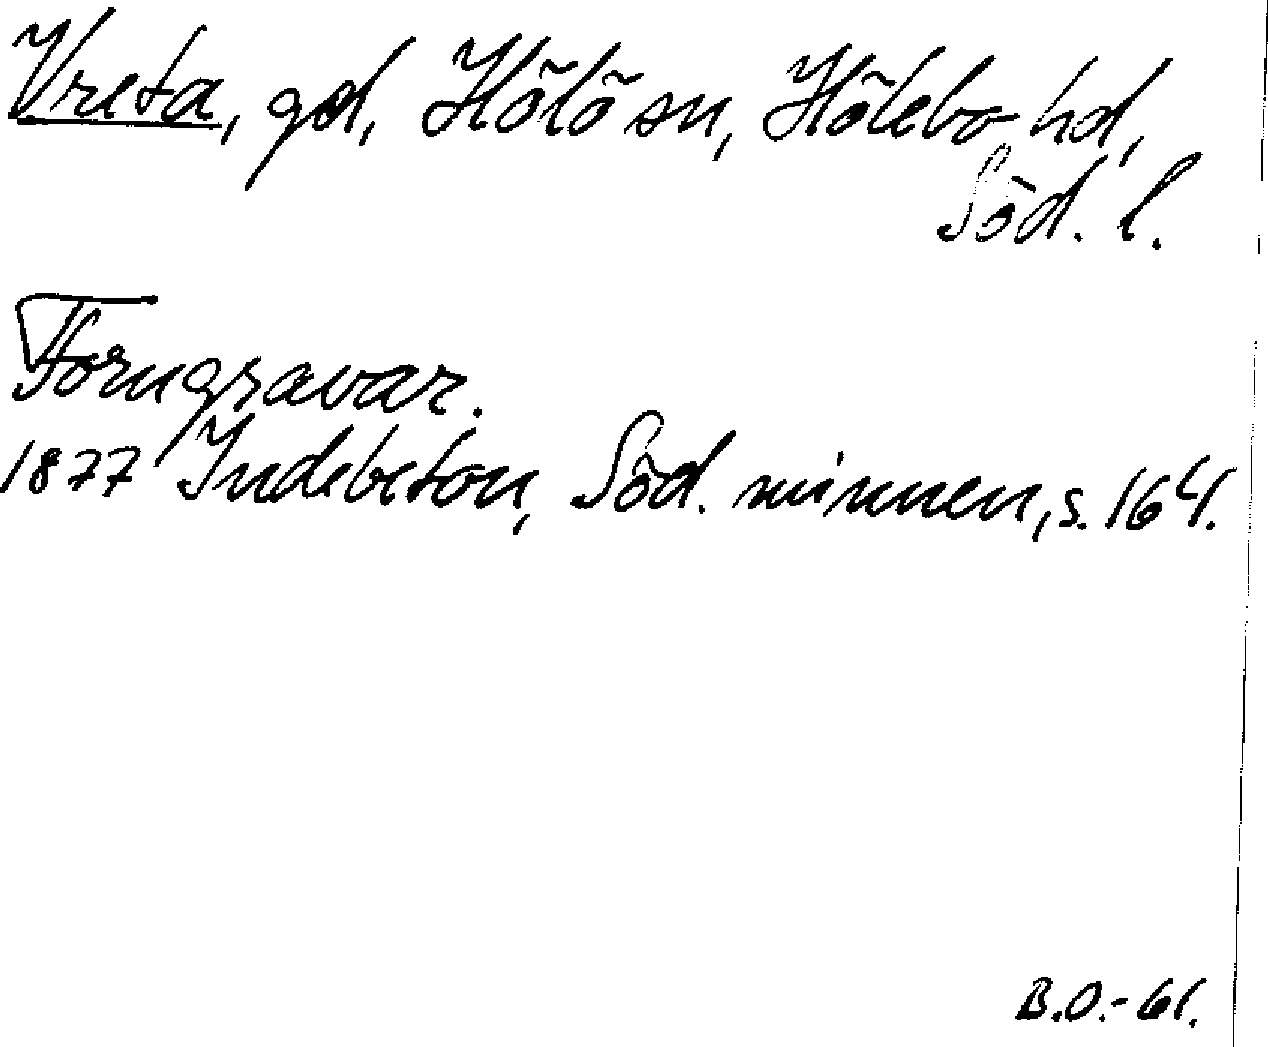 Vreta, gd, Hölö sn, Hölebo hd,
Söd. l.
Forngravar.
1877 Indebetou, Söd. minnen, s. 164.
B.O.-61.